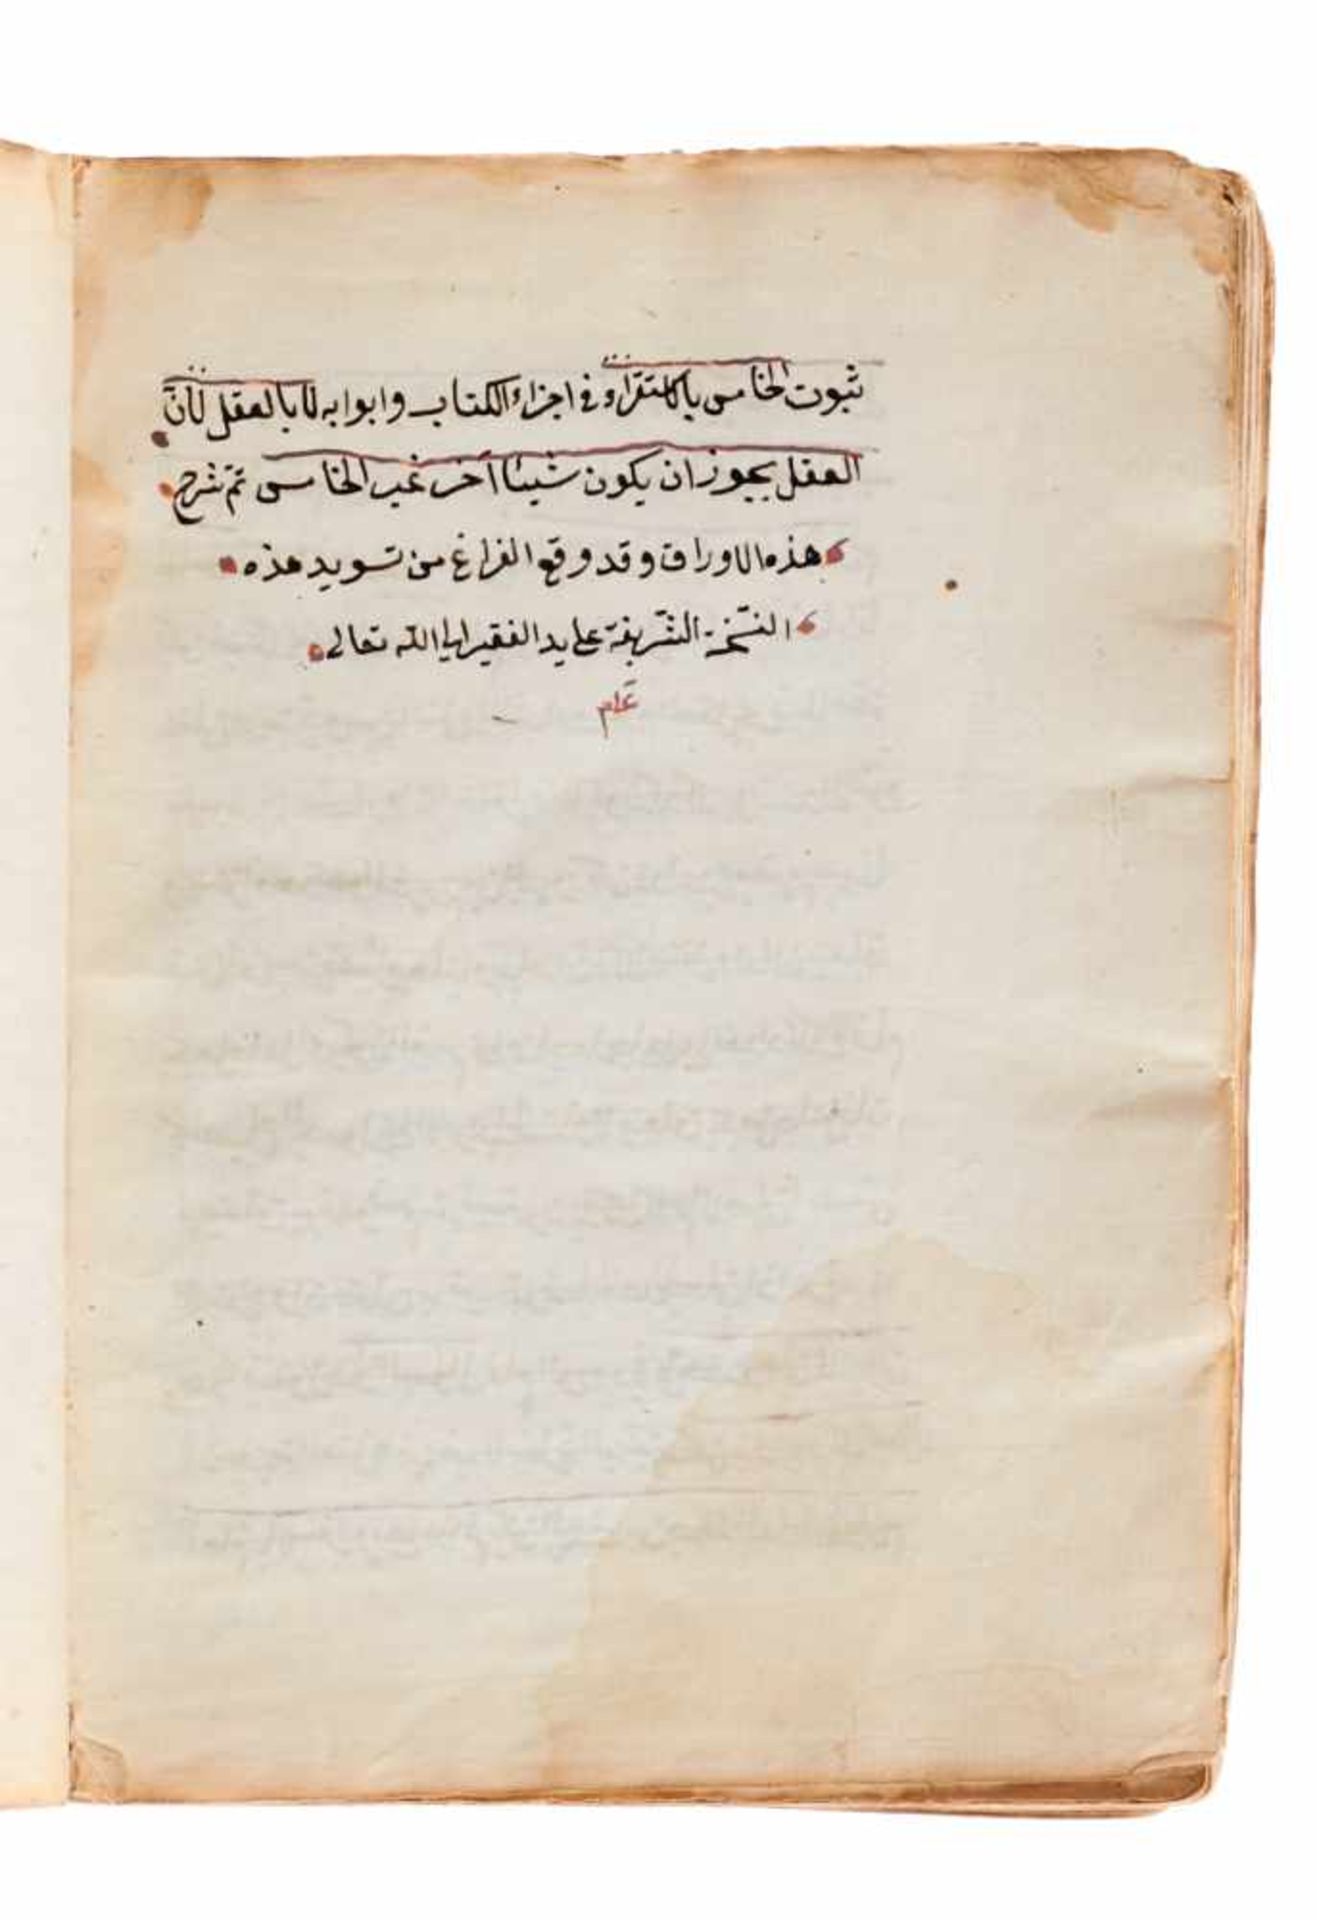 ثبوت الخامس بالاستقراء في اجزاء الكتاب وابوابه لا بالعقل لأنّ
العقل يجوز ان يكون شيئا آخر غير الخامس تمّ شرح
هذه الاوراق وقد وقع الفراغ من تسويد هذه
النسّخة الشّريفة على يد الفقير الى الله تعالى